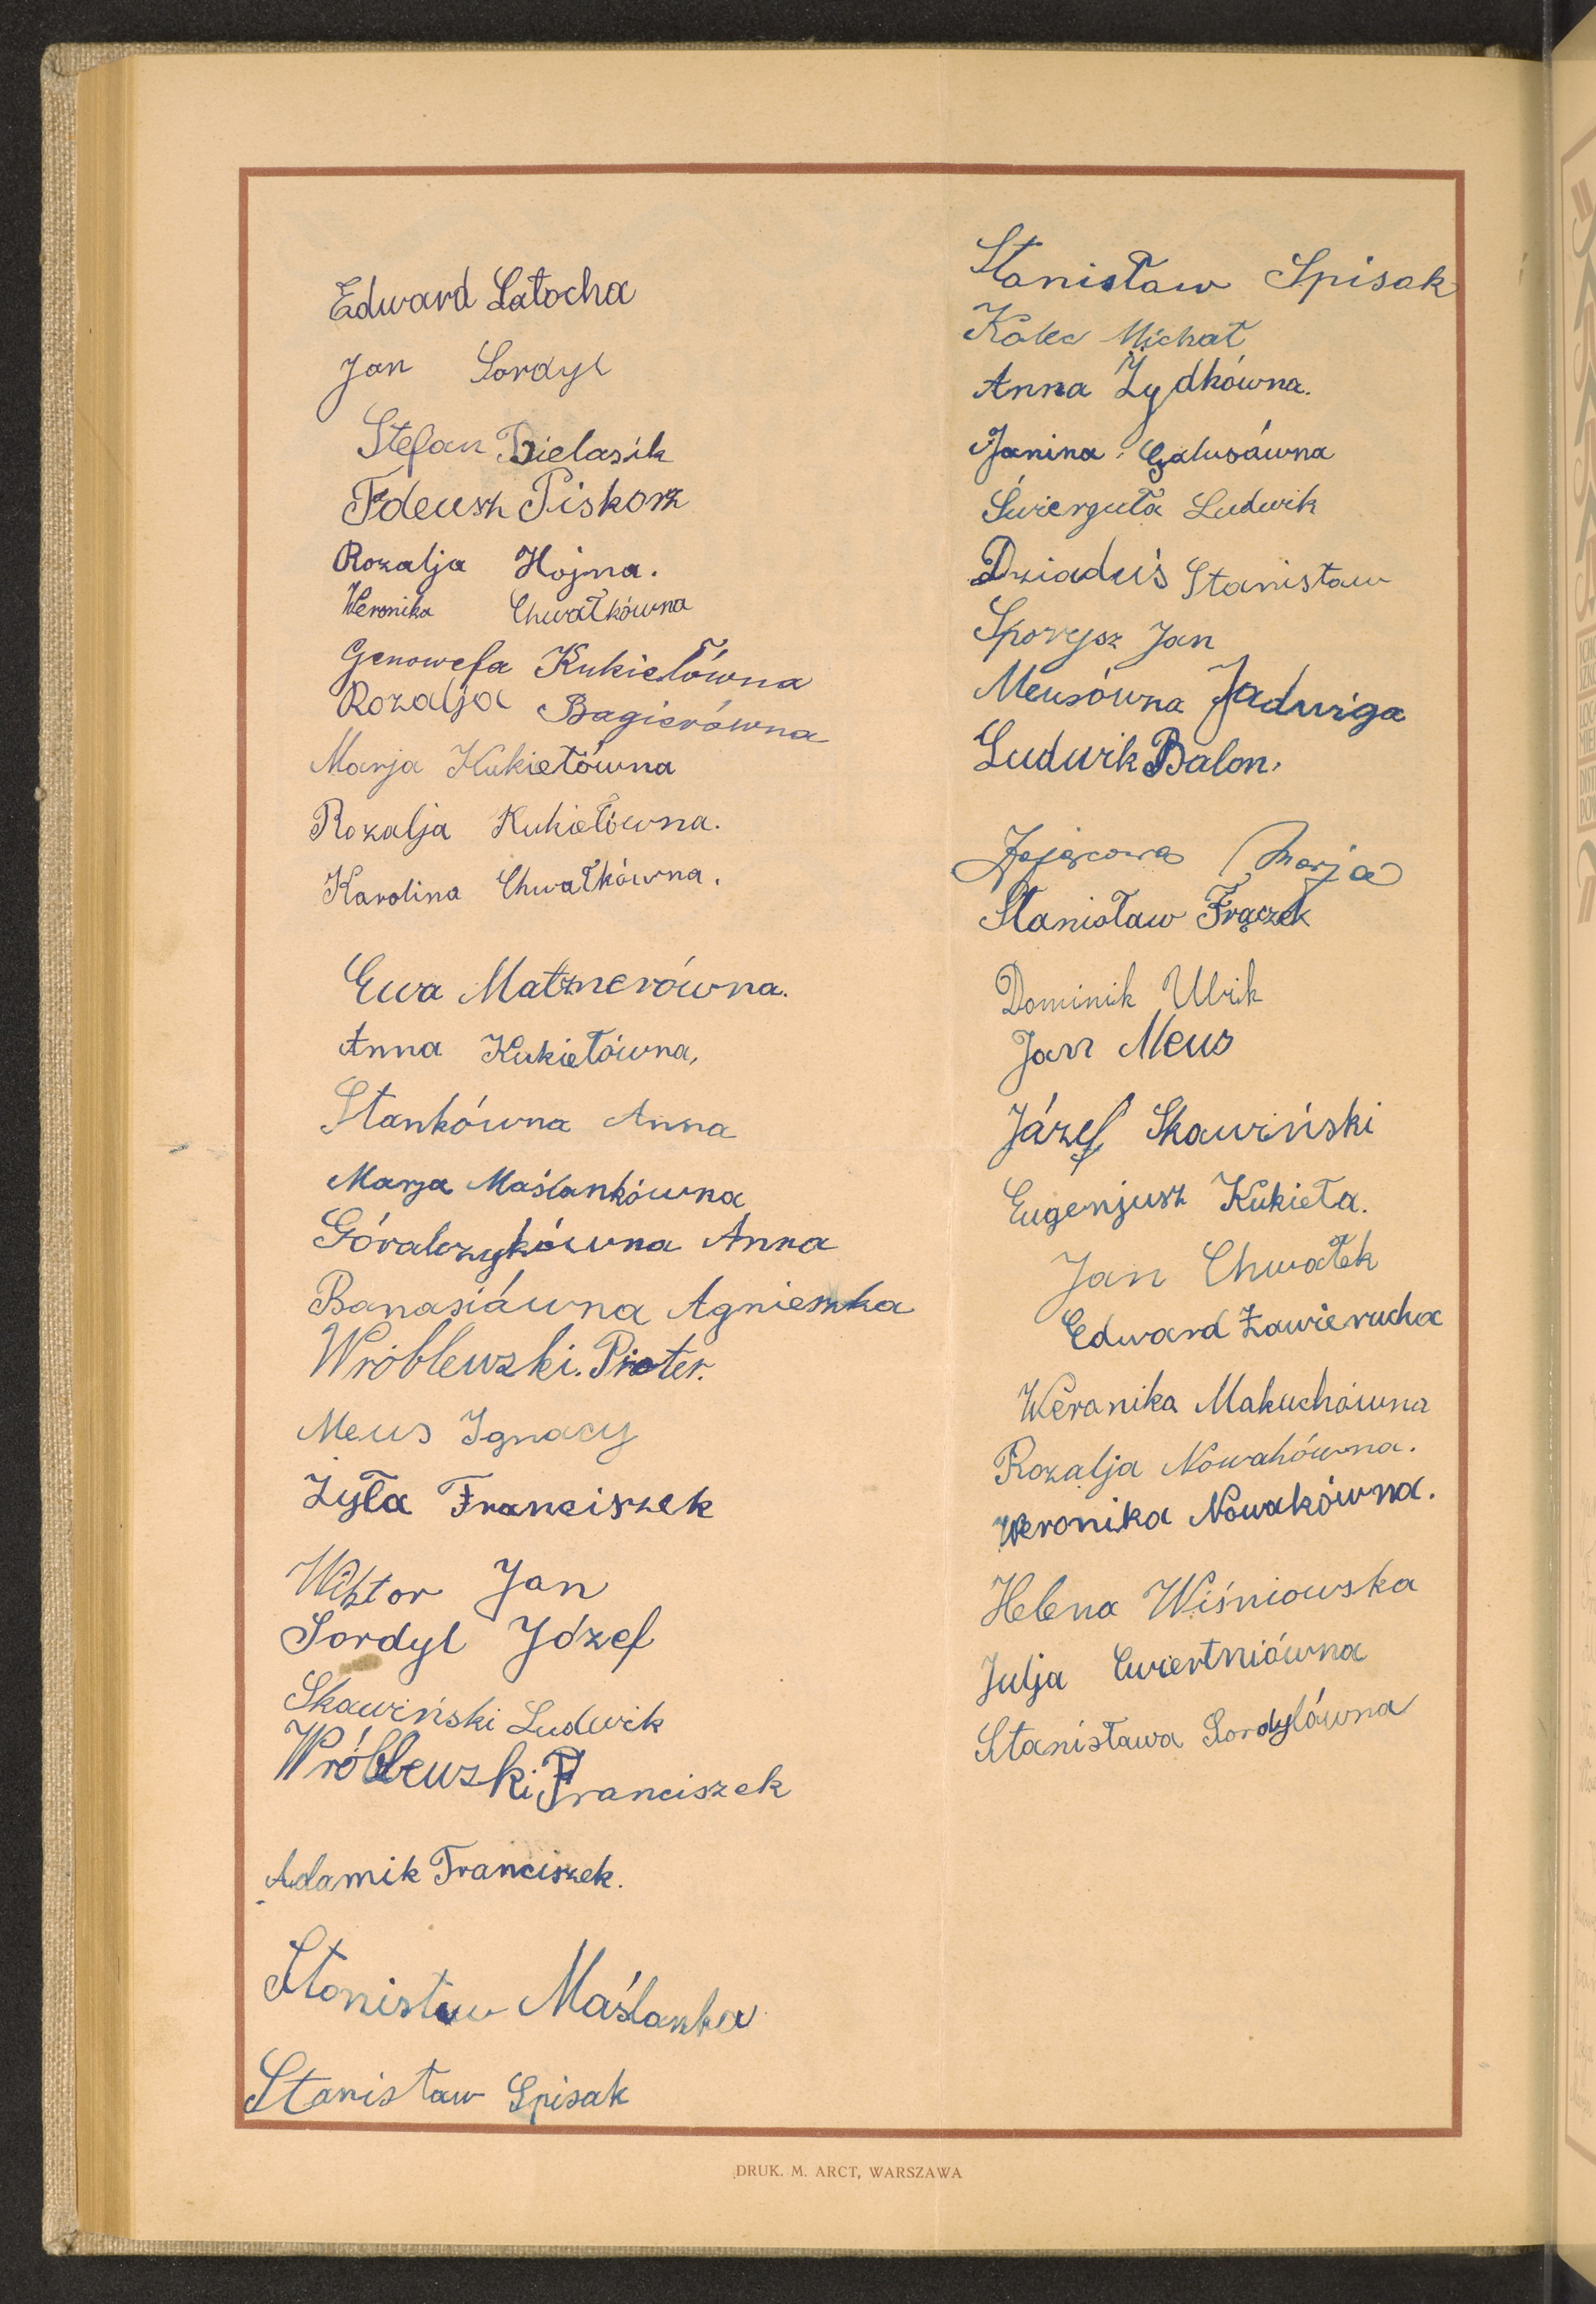 Edward Latocha
Jan Sordyl
Stefan Bielasik
Tadeusz Piskorz
Rozalja Hojna.
Weronika Chwałkówna
Genowefa Kukiełówna
Rozalja Bagierówna
Marja Kukiełówna
Rozalja Kukiełówna.
Karolina Chwałkówna.
Ewa Matznerówna.
Anna Kukiełówna,
Stankówna Anna
Marja Maślankówna
Góralczykówna Anna
Banasiówna Agnieszka
Wróblewski. Pioter.
Meus Ignacy
Żyła Franciszek
Wiktor Jan
Sordyl Józef
Skawiński Ludwik
Wróblewski Franciszek
Adamik Franciszek.
Stanisław Maślanka
Stanisław Spisak
Stanisław Spisak
Michał
Anna Żydkówna.
Janina Galusówna
Świerguła Ludwik
Dziaduś Stanisław
Sporysz Jan
Meusówna Jadwiga
Ludwik Balon.
Zającowa Marja
Stanisław Frączek
Dominik
Jan Meus
Józef Skawiński
Eugenjusz Kukieła.
Jan Chwałek
Edward Zawierucha
Weronika Makuchówna
Rozalja Nowakówna.
Weronika Nowakówna.
Helena Wiśniowska
Julja Ćwiertniówna
Stanisława Sordylówna
DRUK. M. ARCT, WARSZAWA